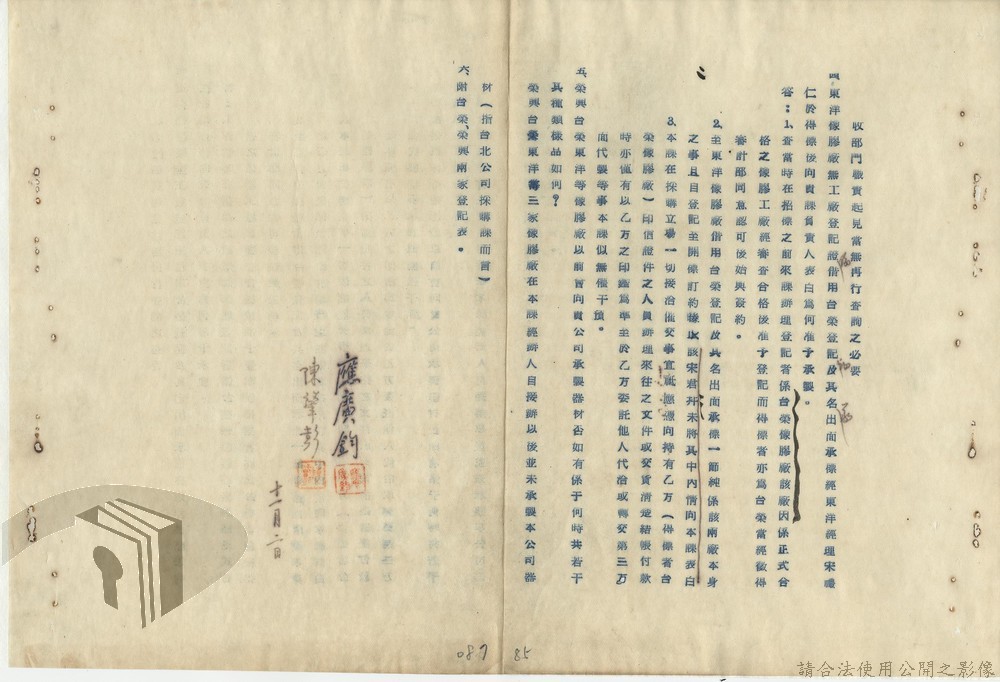 收部門職責起見當無再行查詢之必要
四、東洋橡膠廠無工廠登記證借用台榮登記及其名出面承標經東洋經理宋曦
仁於得標後向貴課負責人表白為何准予承製。
答：1、查當時在招標之前來課辦理登記者係台榮橡膠廠該廠因係正式合
格之橡膠工廠經審查合格後准予登記而得標者亦為台榮當經徵得
審計部同意認可後始與簽約。
2、至東洋橡膠廠借用台榮登記及其名出面承標一節純係該兩廠本身
之事且自登記至開標訂約後該宋君幷未將其中內情向本課表白
3、本課在採購立場一切接洽催交事宜祗應憑向持有乙方（得標者台
榮橡膠廠）印信證件之人員辦理來往之文件或交貨清楚結帳付款
時亦僅有以乙方之印鑑為準至於乙方委託他人代洽或轉交第三方
面代製等事本課似無權干預。
五、榮興台榮東洋等橡膠廠以前曾向貴公司承製器材否如有係于何時共若干
其種類樣品如何？
榮興台榮東洋等三家橡膠廠在本課經辦人自接辦以後並未承製本公司器
材（指台北公司採購課而言）
六、附台榮、榮興兩家登記表。
應廣鈞
陳肇彭
十一月二日
087
85
請合法使用公開之影像